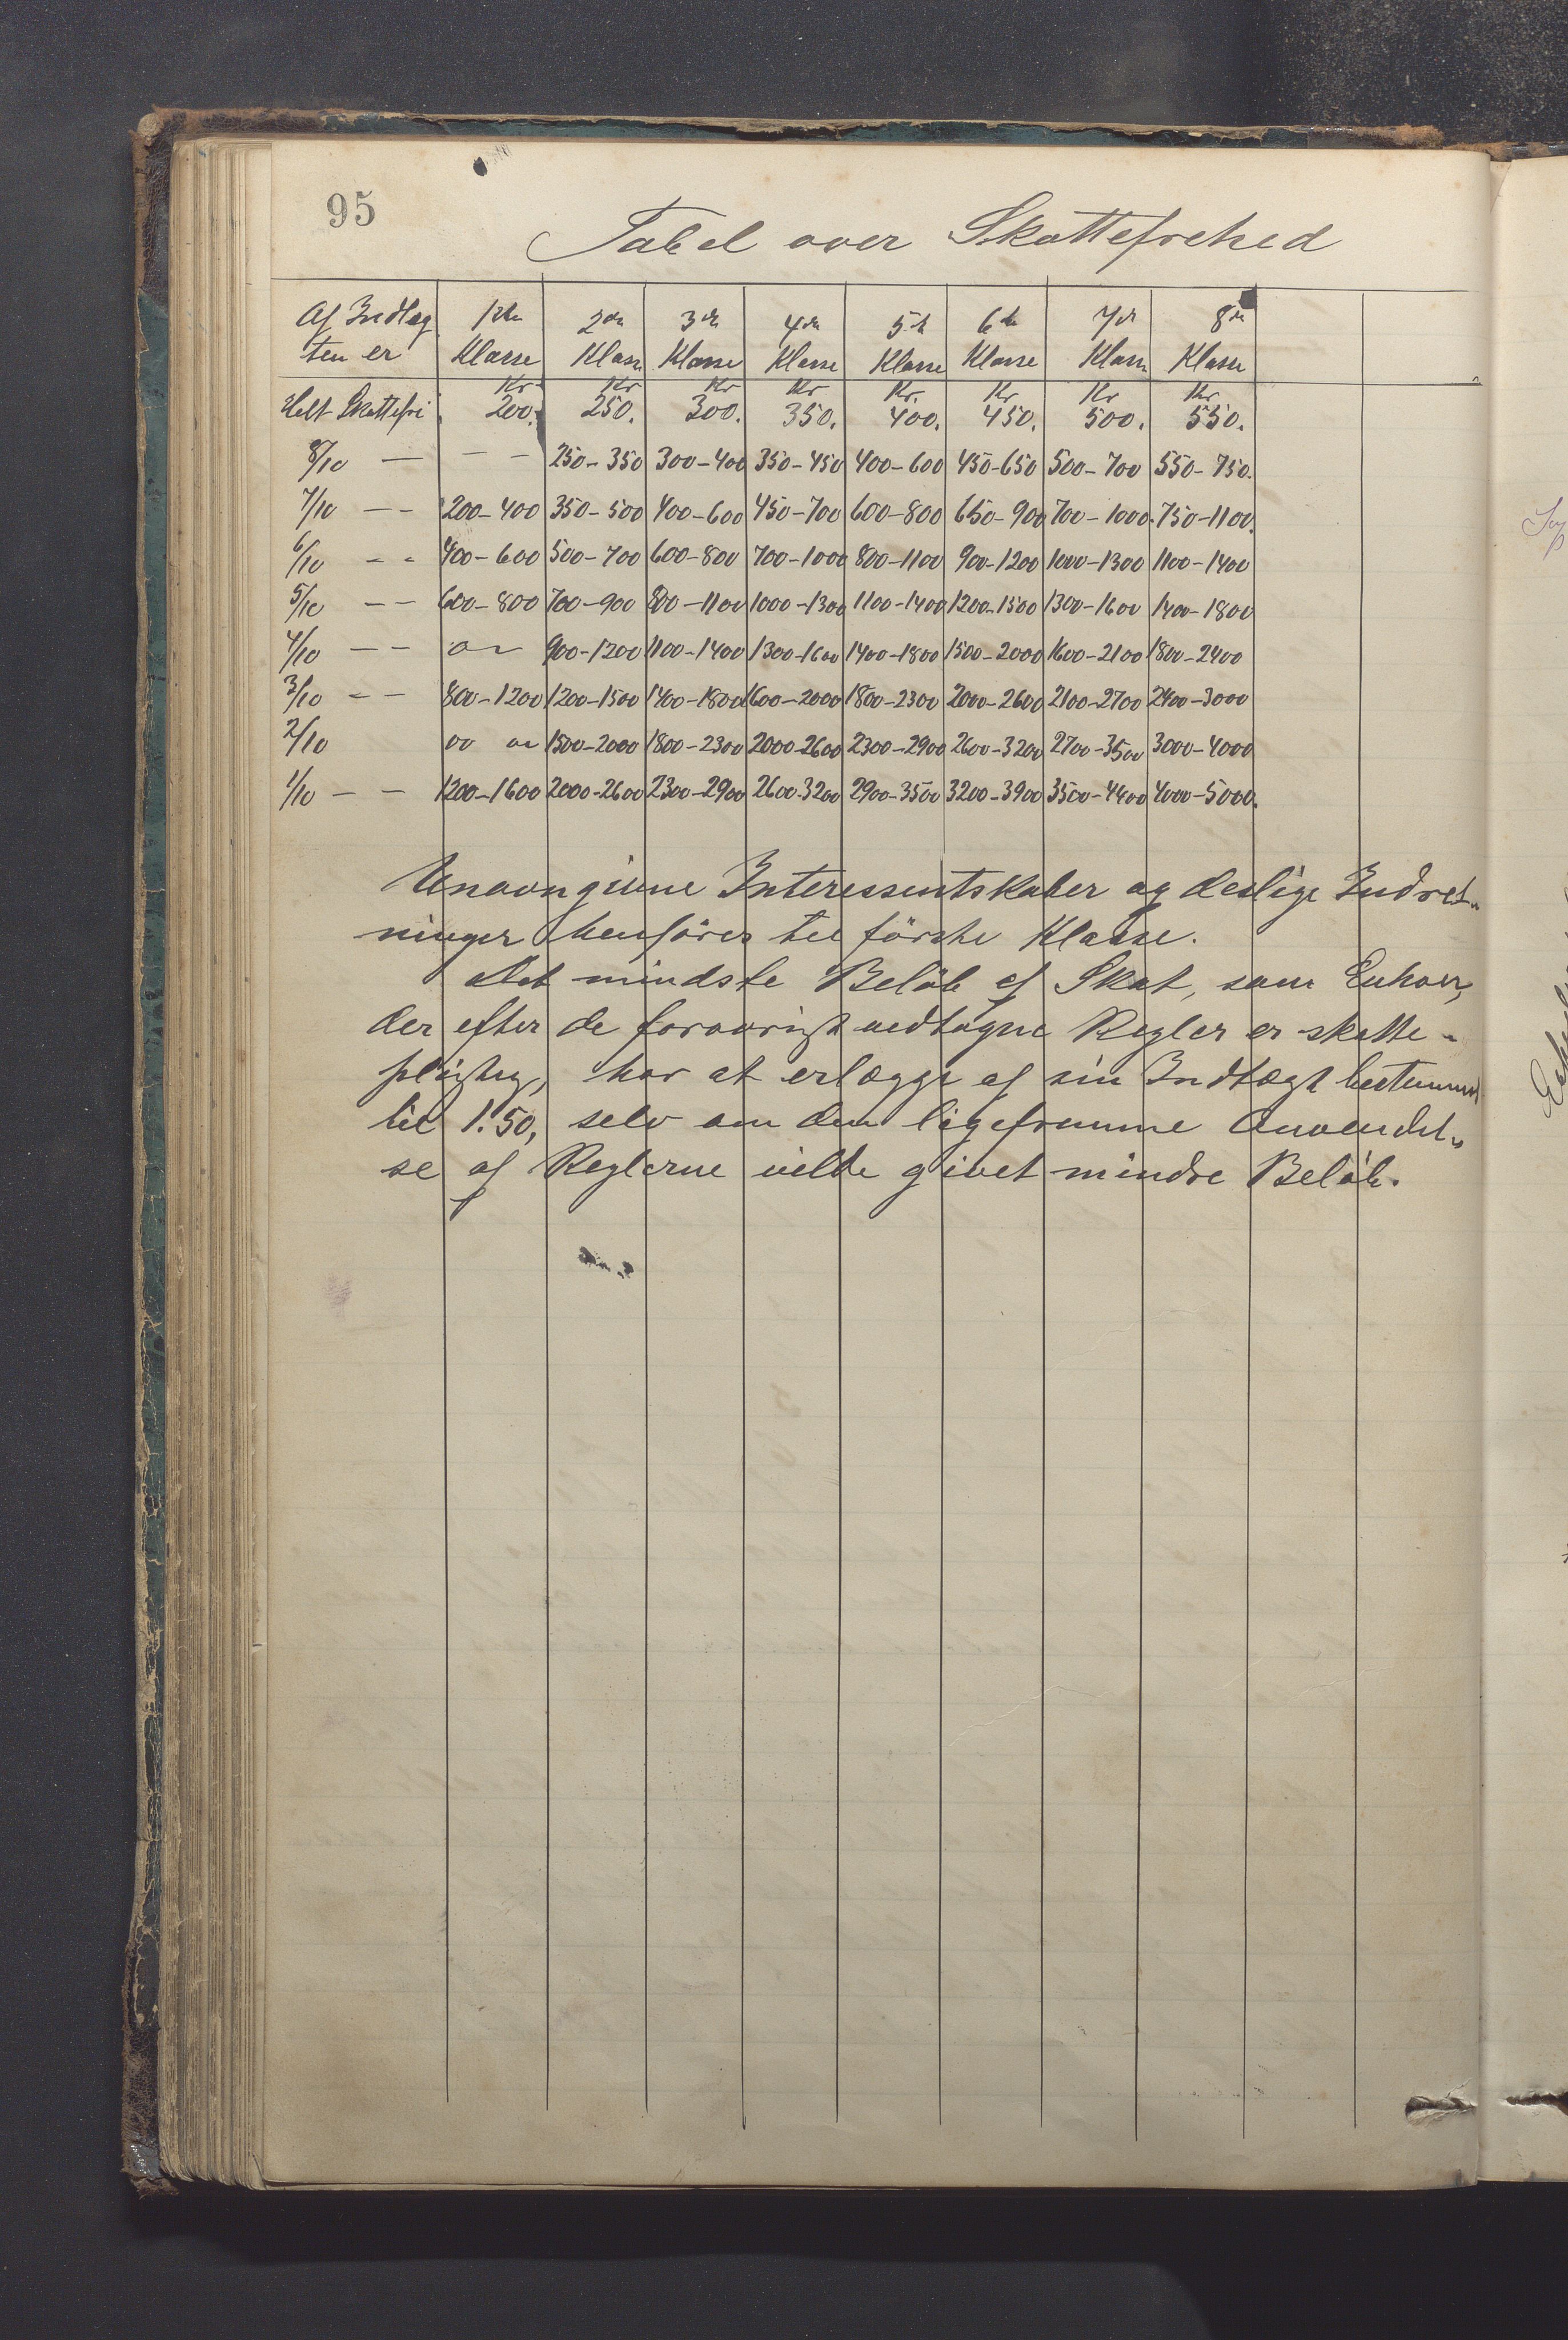 95
Tabel over Skattefrihed
Af Indtæg 1ste 2den 3die 4de 5te 6te 7de 8de
ten er Klasse Klasse Klasse Klasse Klasse Klasse Klasse Klasse
Kr Kr Kr Kr Kr. Kr Kr Kr
Helt Skattefri 200. 250. 300. 350. 400. 450. 500. 550.
8/10 — — — 250-350 300-400 350-450 400-600 450-650 500-700 550-750.
7/10 — — 200-400 350-500 400-600 450-700 600-800 650-900 700-1000 750-1100.
6/10 - - 400-600 500-700 600-800 700-1000 800-1100 900-1200 1000-1300 1100-1400
5/10 — — 600-800 700-900 800-1100 1000-1300 1100-1400 1200-1500 1300-1600 1400-1800
4/10 — — 900-1200 1100-1400 1300-1600 1400-1800 1500-2000 1600-2100 1800-2400
3/10 - — 800-1200 1200-1500 1400-1800 1600-2000 1800-2300 2000-2600 2100-2700 2400-3000
2/10 1500-2000 1800-2300 2000-2600 2300-2900 2600-3200 2700-3500 3000-4000
1/10 — — 1200-1600 2000-2600 2300-2900 2600-3200 2900-3500 3200-3900 3500-4400 4000-5000.
Unavngivne Interessentskaber og deslige Indret-
ninger henføres til første Klasse.
Det mindste Beløb af Skat, som Enhver,
der efter de forøvrigt vedtagne Regler er skatte-
pligtig, har at erlægge af sin Indtægt bestemmes
til 1.50, selv om den ligefremme Anvendel-
se af Reglerne vilde givet mindre Beløb.